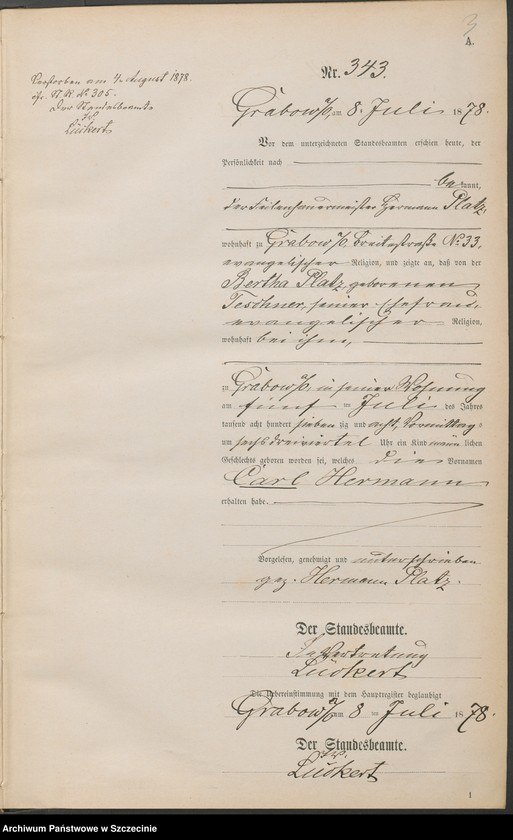 3
A.
Verstorben am 4. August 1878.
cfr. St. R. No. 305.
Der Standesbeamte
Lückert
Nr. 343.
Grabow a/O, am 8. Juli 1878.
Vor dem unterzeichneten Standesbeamten erschien heute, der
Persönlichkeit nach
bekannt,
der Feilenhauermeister Hermann Platz,
wohnhaft zu Grabow a/O. Breitestraße No. 33,
evangelischer Religion, und zeigte an, daß von der
Bertha Platz geborenen
Teschner, seiner Ehefrau,
evangelischer Religion,
wohnhaft bei ihm,
zu Grabow a/O. in seiner Wohnung
am fünf ten Juli des Jahres
tausend acht hundert sieben zig und acht, Vormittags
um sechs dreiviertel Uhr ein Kind männlichen
Geschlechts geboren worden sei, welches die Vornamen
Carl Hermann
erhalten habe.
Vorgelesen, genehmigt und unterschrieben
gez. Hermann Platz.
Der Standesbeamte.
In Vertretung
Lückert
Die Uebereinstimmung mit dem Hauptregister beglaubigt
Grabow a/O, am 8 ten Juli 1878.
Der Standesbeamte.
Lückert
1
Archiwum Państwowe w Szczecinie